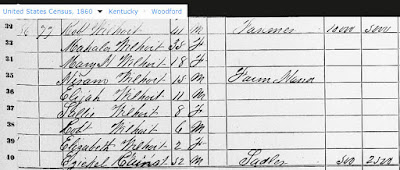 United States Census, 1860 ▾ Kentucky › Woodford
56 77 Robt Wilhoit 41 M Farmer 5000
Mahala Wilhoit 35 F
Mary M Wilhoit 18 F
Wilhoit 15 M Farm Hand
36 Elijah Wilhoit 11 M
37 Sallie Wilhoit 8 F
38 Robt Wilhoit 6 M
39 Elizabeth Wilhoit 2 F
40 Ezekiel 52 M Sadler 500 2500